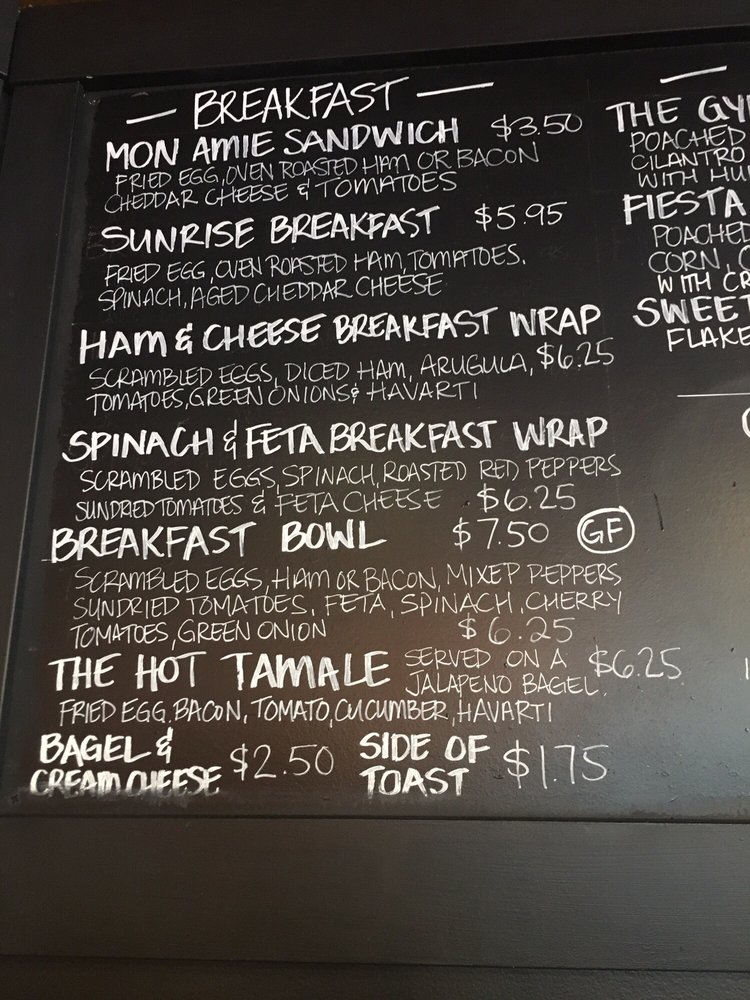 — BREAKFAST —
MON AMIE SANDWICH $3.50
FRIED EGG, OVEN ROASTED HAM OR BACON
CHEDDAR CHEESE & TOMATOES
SUNRISE BREAKFAST $5.95
FRIED EGG, OVEN ROASTED HAM, TOMATOES.
SPINACH, AGED CHEDDAR CHEESE
HAM & CHEESE BREAKFAST WRAP
SCRAMBLED EGGS, DICED HAM, ARUGULA, $6.25
TOMATOES, GREEN ONIONS & HAVARTI
SPINACH & FETA BREAKFAST WRAP
SCRAMBLED EGGS, SPINACH, ROASTED RED PEPPERS
SUNDRIED TOMATOES & FETA CHEESE $6.25
BREAKFAST BOWL $7.50 GF
SCRAMBLED EGGS, HAM OR BACON, MIXED PEPPERS
SUNDRIED TOMATOES, FETA, SPINACH, CHERRY
TOMATOES, GREEN ONION $6.25
THE HOT TAMALE SERVED ON A $6.25
JALAPENO BAGEL.
FRIED EGG, BACON, TOMATO, CUCUMBER, HAVARTI
BAGEL & CREAM CHEESE $2.50
SIDE OF TOAST $1.75
THE GY
POACHED
CILANTRO
WITH HU
FIESTA
POACHED
CORN, C
WITH CR
SWEET
FLAKE